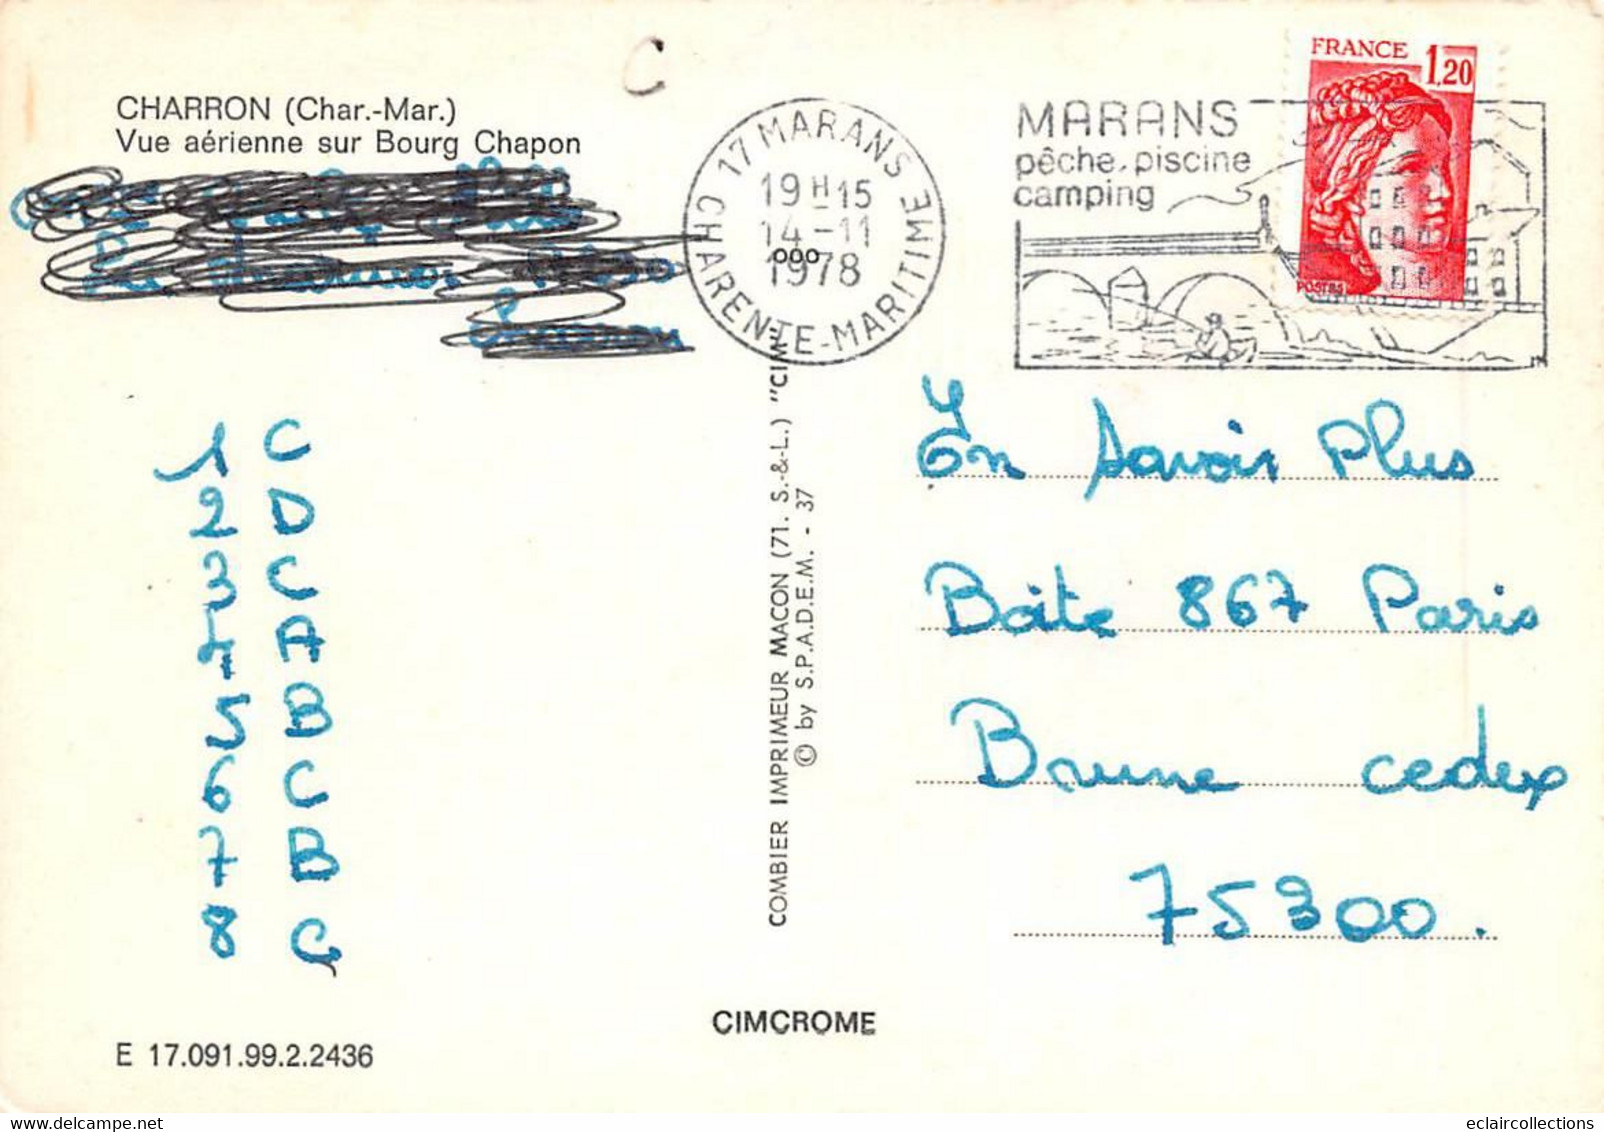 C
CHARRON (Char.-Mar.)
Vue aérienne sur Bourg Chapon
17 MARANS
19 H 15
14-11
1978
CHARENTE-MARITIME
ooo
MARANS
pêche. piscine
camping
FRANCE 1,20
POSTES
1 C
2 D
3 C
4 A
5 B
6 C
7 B
8 C
COMBIER IMPRIMEUR MACON (71. S.-&-L.) "CIM"
© by S.P.A.D.E.M. - 37
En Savoir Plus
Boite 867 Paris
Brune cedex
75300.
CIMCROME
E 17.091.99.2.2436
eclaircollections